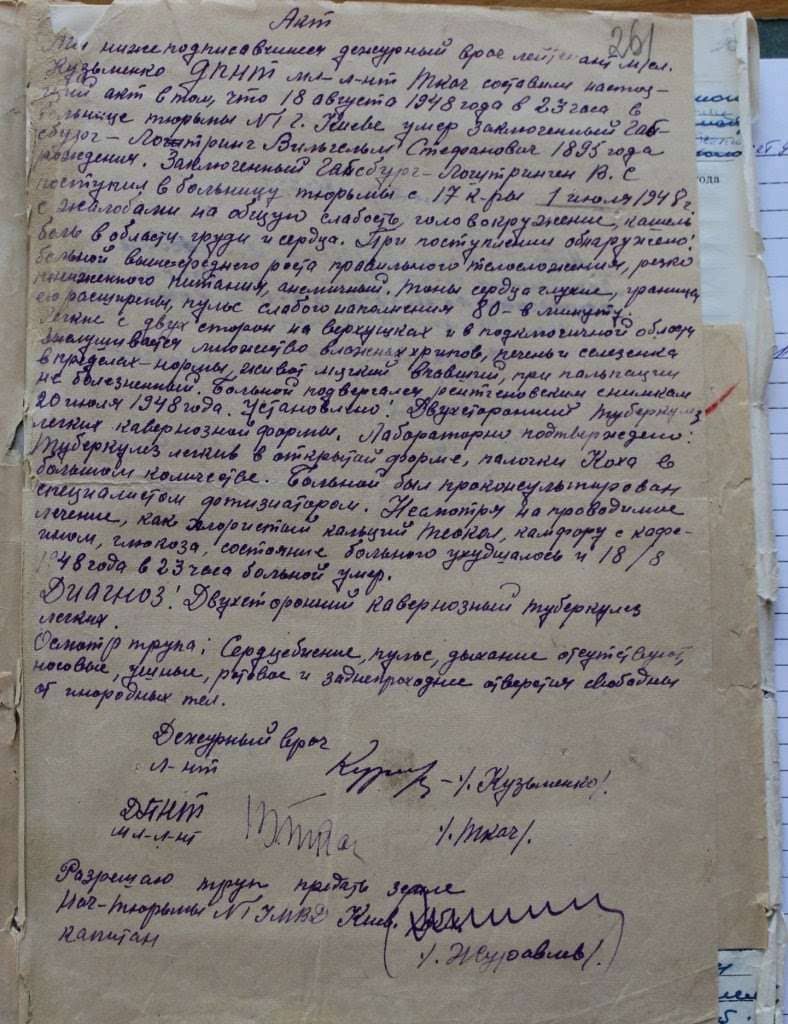 Акт
261
Мы нижеподписавшиеся дежурный врач лейтенант м/сл.
Кузьменко ДПНТ мл-л-нт Ткач составили настоя-
щий акт в том, что 18 августа 1948 года в 23 часа в
больнице тюрьмы №1 г. Киеве умер заключенный Габ-
сбург-Лоштринг Вильгельм Стефанович 1895 года
рождения. Заключенный Габсбург-Лоштринген В. С
поступил в больницу тюрьмы с 17 к-ры 1 июля 1948 г.
с жалобами на общую слабость, головокружение, кашель
боль в области груди и сердца. При поступлении обнаружено!
больной выше-среднего роста правильного телосложения, резко
пониженного питания, анемичный. Тоны сердца глухие, границы
его расширены, пульс слабого наполнения 80-в минуту.
Легкие с двух сторон на верхушках и в подключичной области
выслушивается множество влажных хрипов, печень и селезенка
в пределах-нормы, живот мягкий впавший, при пальпации
не болезненный. Больной подвергался рентгеновским снимкам
20 июля 1948 года. Установлено: Двухсторонний туберкулез
легких кавернозной формы. Лабораторно подтверждено:
Туберкулез легких в открытой форме, палочки Коха в
большом количестве. Больной был проконсультирован
специалистом фтизиатором. Несмотря на проводимое
лечение, как хлористый кальций тиокол, камфору с кофе-
ином, глюкоза, состояние больного ухудшалось и 18/8
1948 года в 23 часа больной умер.
Диагноз! Двухсторонний кавернозный туберкулез
легких.
Осмотр трупа; Сердцебиение, пульс, дыхание отсутствуют,
носовые, ушные, ротовое и заднепроходние отверстия свободны
от инородных тел.
Дежурный врач
л-нт /. Кузьменко/.
ДПНТ
мл-л-нт Ткач /. Ткач/.
Разрешаю труп предать земле
Нач-тюрьмы №1 УМВД Киев.
капитан
/. Журавлев/.
года